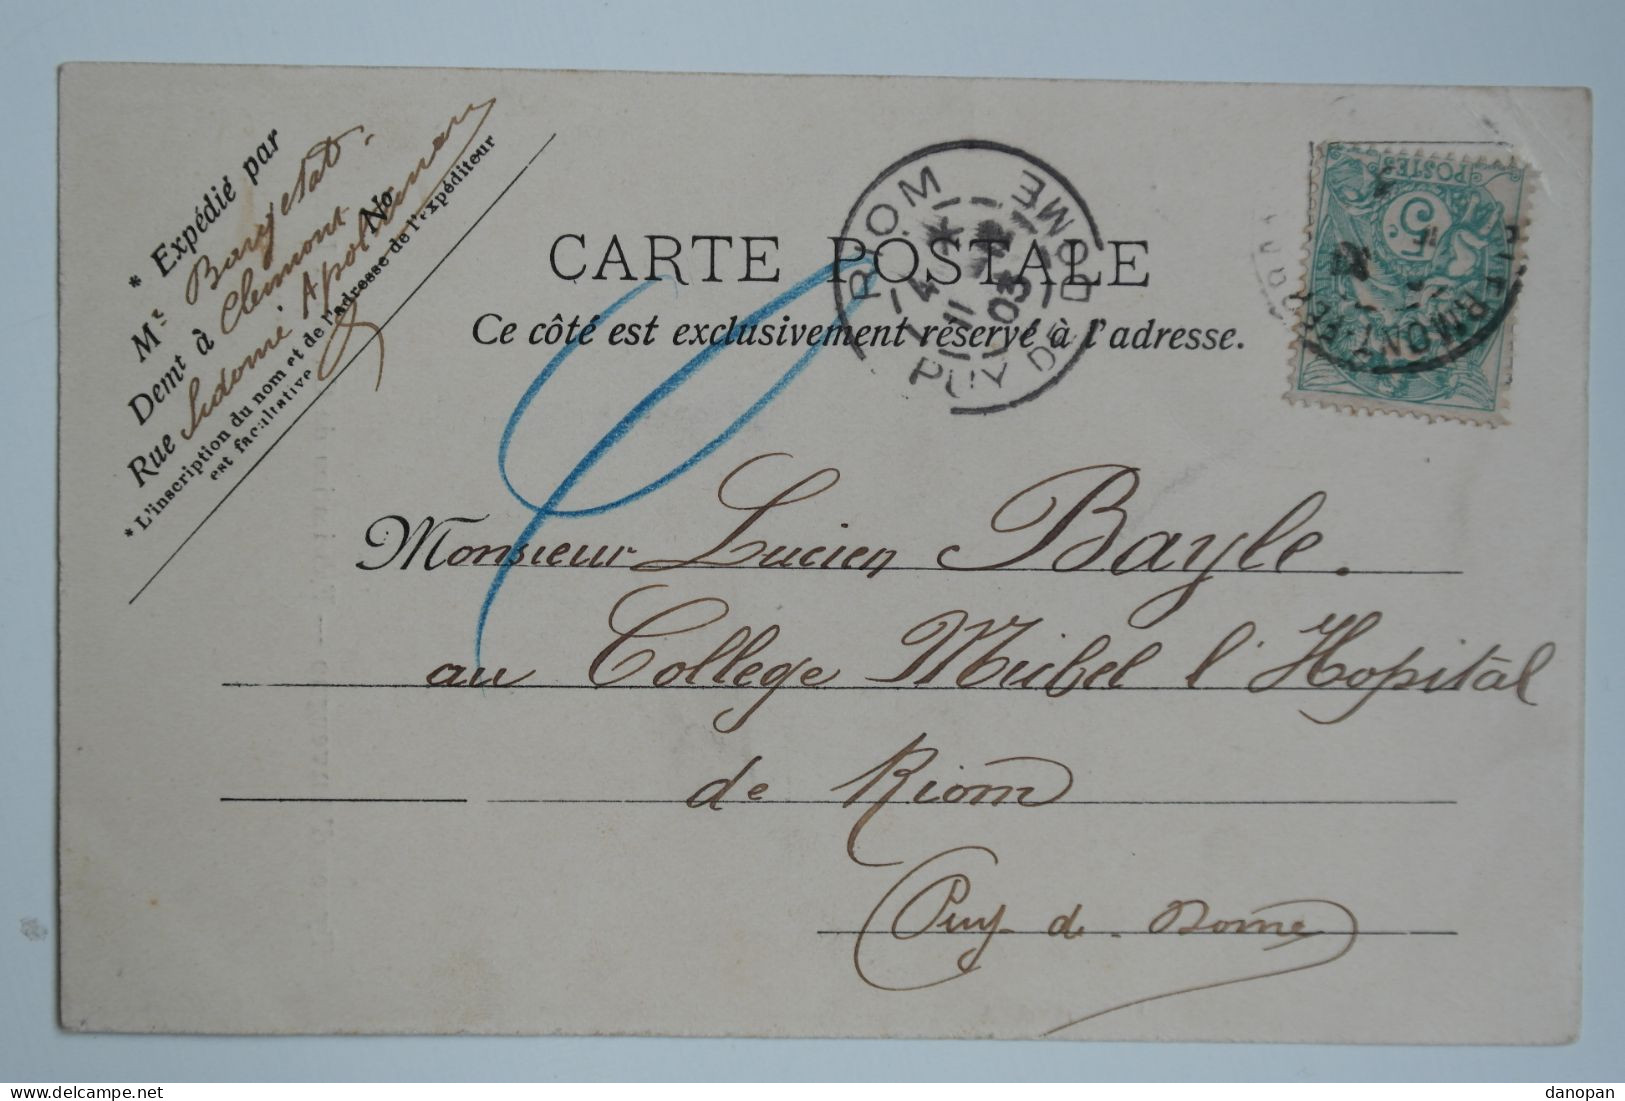 * Expédié par
Mr
Demt à Clermont
Rue Sidoine Apollinaire No
* L'inscription du nom et de l'adresse de l'expéditeur
est facultative
CARTE POSTALE
Ce côté est exclusivement réservé à l'adresse.
RIOM
PUY DE DOME
14
11
03
POSTES
5
Monsieur Lucien Bayle.
au College Michel l'Hopital
de Riom
Puy-de-Dome
www.delcampe.net
danopan